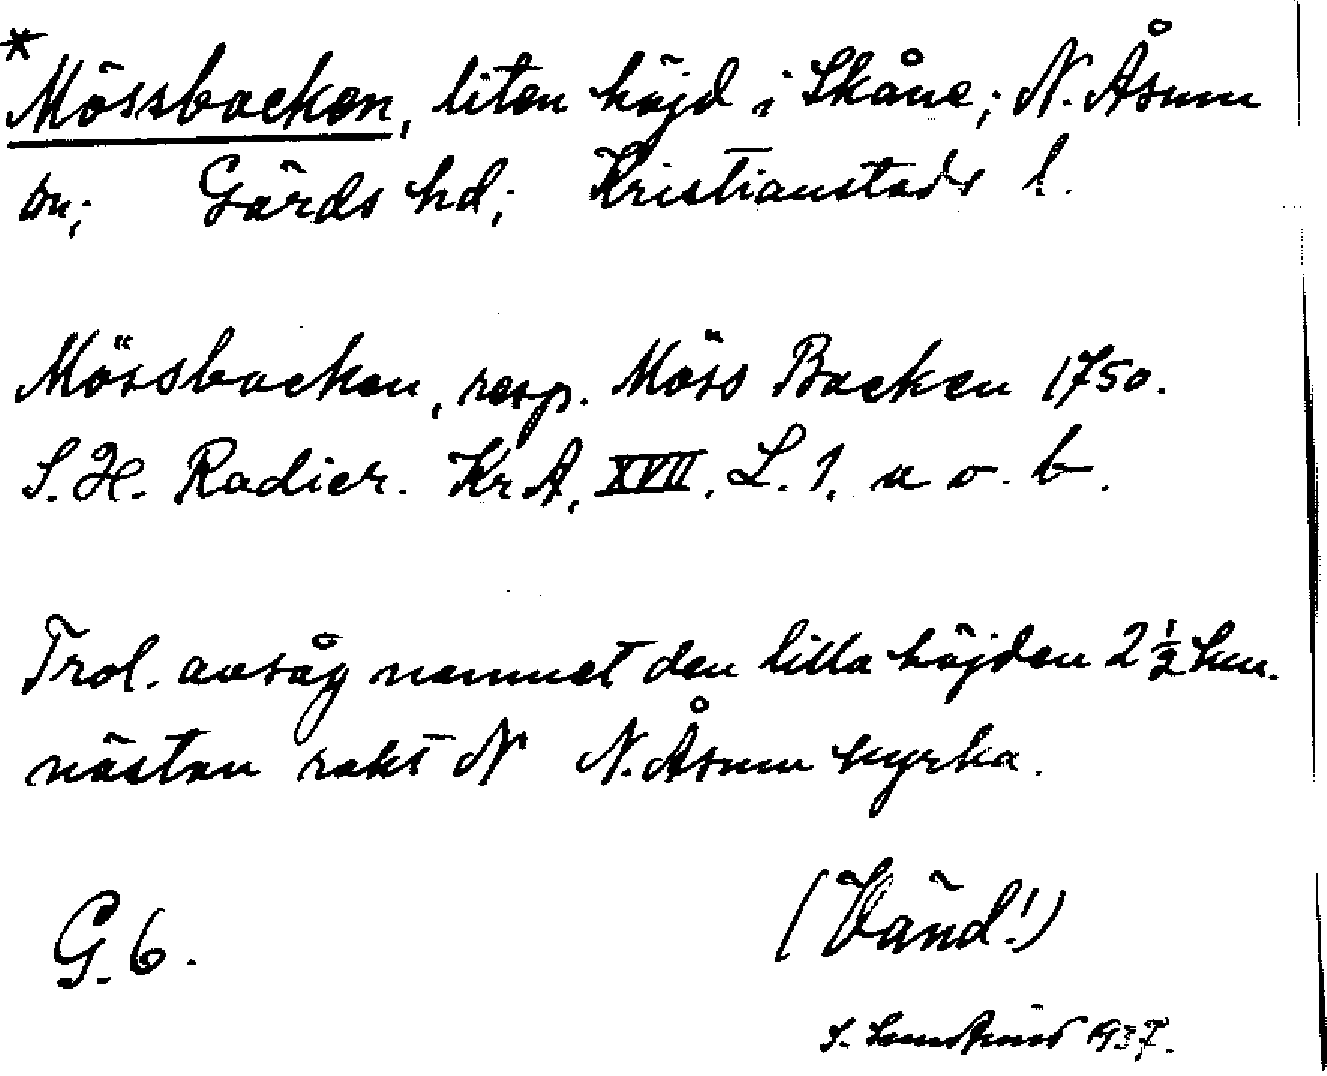 *Mössbacken, liten höjd i Skåne; N. Åsum
sn; Gärds hd; Kristianstads l.
Mössbacken, resp. Möss Backen 1750.
S. H. Radier. KrA, XVII. L. 1. a o. b.
Trol. avsåg namnet den lilla höjden 2 1/2 km.
nästan rakt N N. Åsum kyrka.
G. 6.
(Vänd!)
S. 1937.